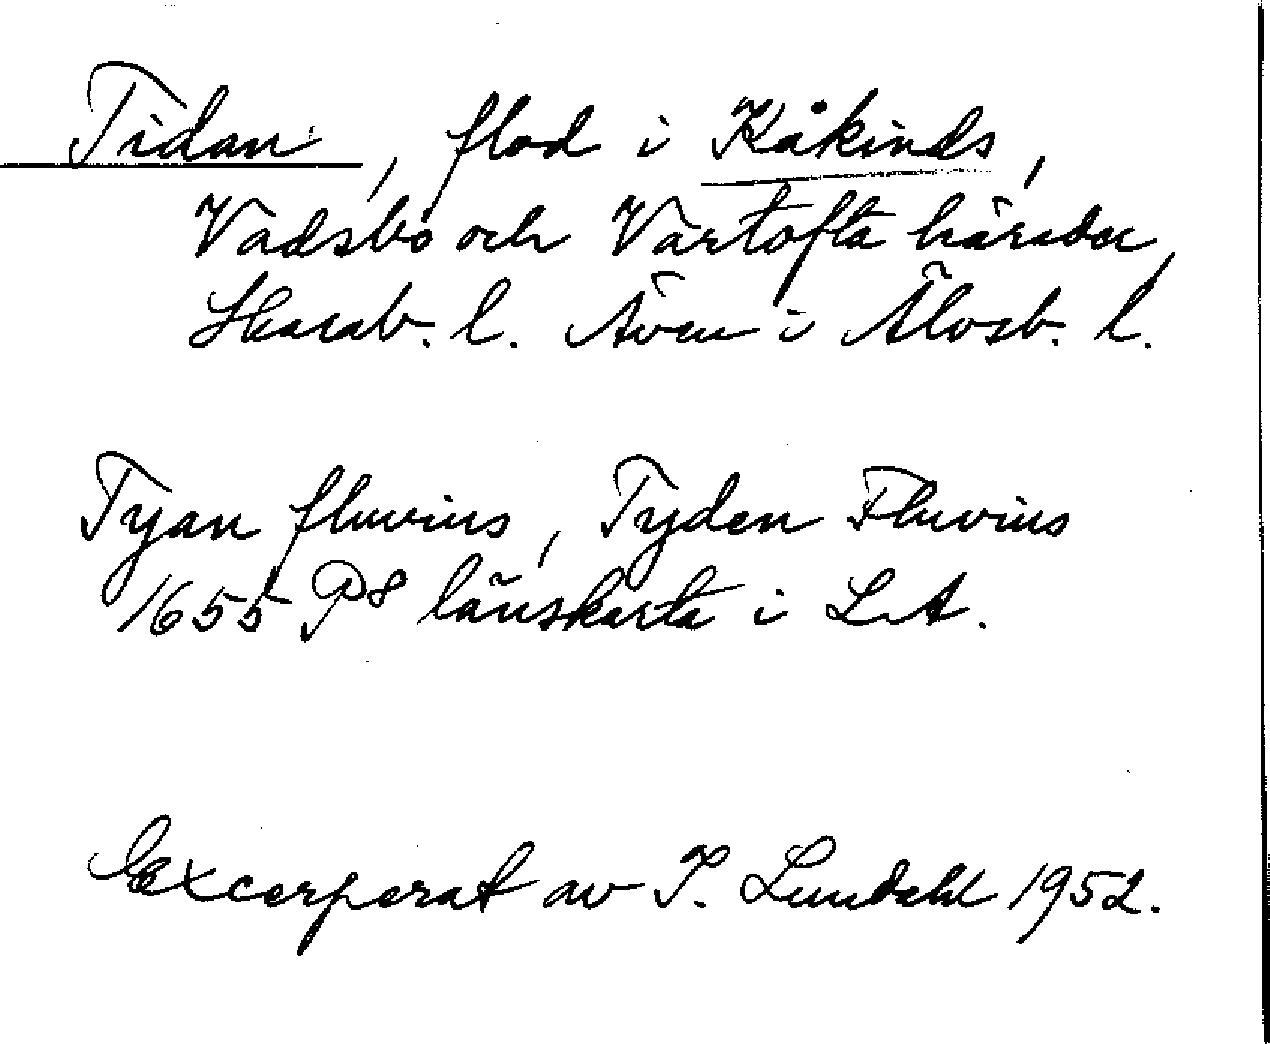 Tidan, flod i Kåkinds,
Vadsbo och Vartofta härader,
Skarab. l. Även i Älvsb. l.
Tyan fluvius, Tyden Fluvius
1655 P8 länskarta i LA.
Excerperat av I. Lundahl 1952.